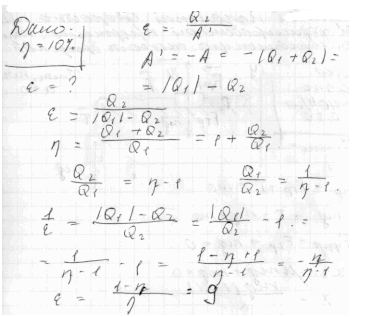 Дано:
η = 10%
ε = ?
ε = Q₂/A'
A' = -A = -(Q₁ + Q₂) =
= |Q₁| - Q₂
ε = Q₂/(|Q₁| - Q₂)
η = (Q₁ + Q₂)/Q₁ = 1 + Q₂/Q₁
Q₂/Q₁ = η - 1 Q₁/Q₂ = 1/(η - 1).
1/ε = (|Q₁| - Q₂)/Q₂ = |Q₁|/Q₂ - 1. =
= 1/(η - 1) - 1 = (1 - η + 1)/(η - 1) = -η/(η - 1)
ε = (1 - η)/η = 9